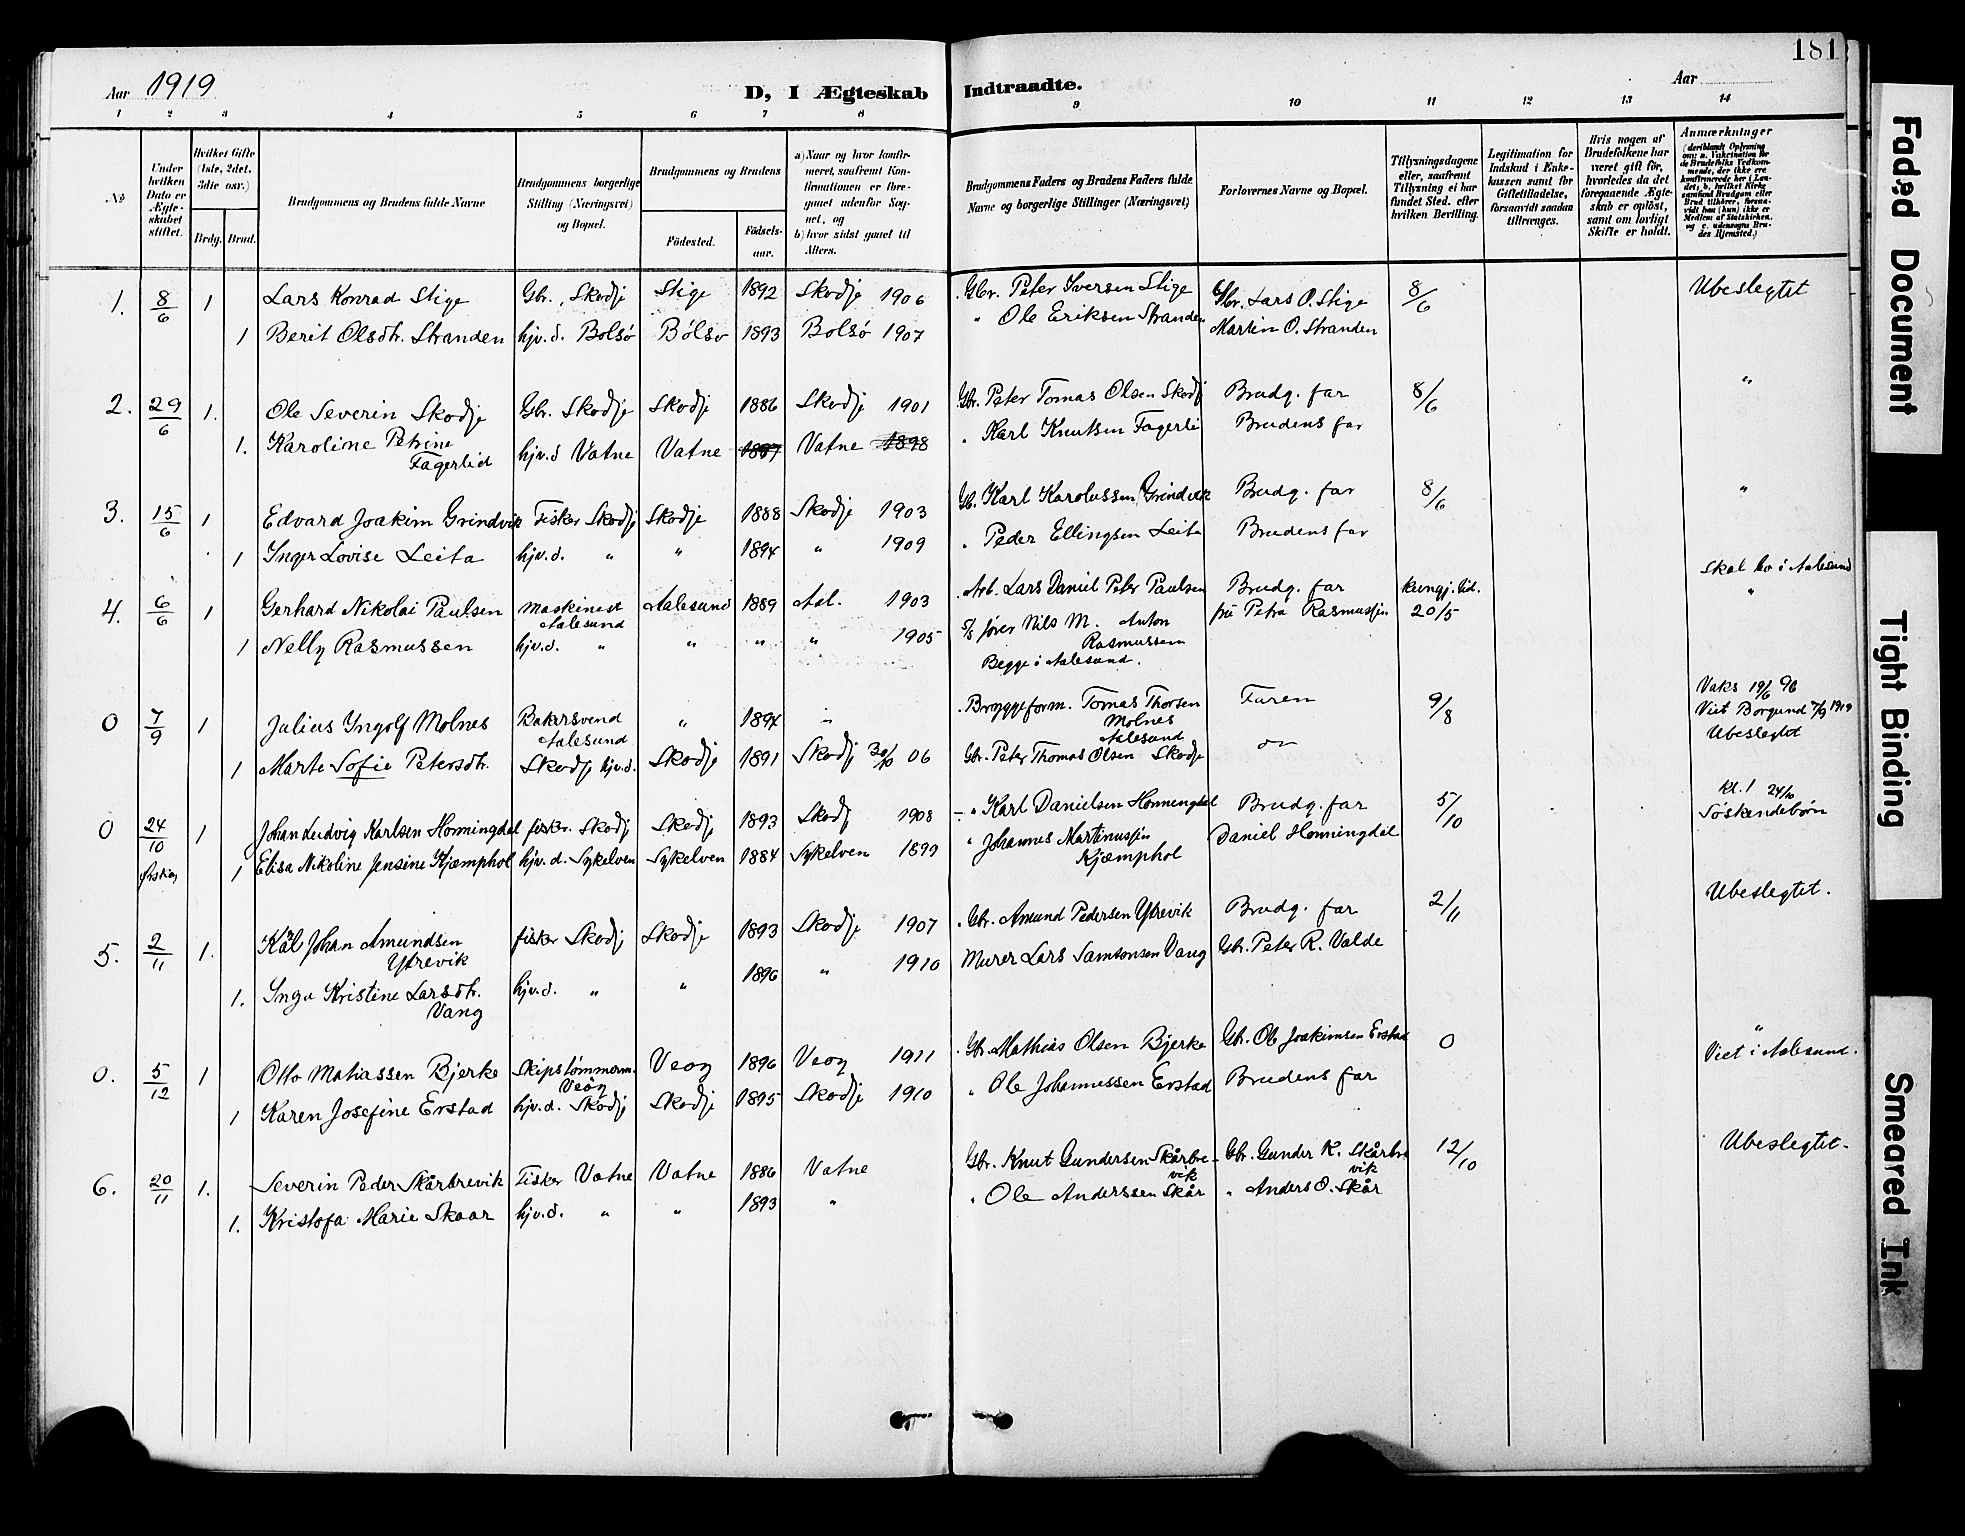 181
Aar 1919 D, I Ægteskab Indtraadte. Aar
1 2 3 4 5 6 7 8 9 10 11 12 13 14
№
Under hvilken Dato er Ægteskabet stiftet.
Hvilket Gifte (1ste, 2det, 3die osv.)
Brdg. Brud.
Brudgommens og Brudens fulde Navne
Brudgommens borgerlige Stilling (Næringsvei) og Bopæl.
Brudgommens og Brudens
Födested. Födselsaar.
a) Naar og hvor konfirmeret, saafremt Konfirmationen er foregaaet udenfor Sognet, og
b) hvor sidst gaaet til Alters.
Brudgommens Faders og Brudens Faders fulde Navne og borgerlige Stillinger (Næringsvei)
Forlovernes Navne og Bopæl.
Tillysningsdagene eller, saafremt Tillysning ei har fundet Sted, efter hvilken Bevilling.
Legitimation for Indskud i Enkekassen samt for Giftetilladelse, forsaavidt saadan tiltrænges.
Hvis nogen af Brudefolkene har været gift før, hvorledes da det foregaaende Ægteskab er oplöst, samt om lovligt Skifte er holdt.
Anmærkninger
(deriblandt Oplysning om: a. Vakcination for de Brudefolks Vedkommende, der ikke ere konfirmerede her i Landet; b. hvilket Kirkesamfund Brudgom eller Brud tilhører, forsaavidt han (hun) ikke er Medlem af Statskirken, og c. udensogns Brudes Hjemsted.)
1. 8/6 1 Lars Konrad Stige Gbr., Skodje Stige 1892 Skodje 1906 Gbr. Peter Iversen Stige Gbr. Lars O. Stige 8/6 Ubeslegtet
1 Berit Olsdtr. Stranden hjv.d. Bolsø Bolsø 1893 Bolsø 1907 " Ole Eriksen Stranden Martin O. Stranden
2. 29/6 1. Ole Severin Skodje Gbr. Skodje Skodje 1886 Skodje 1901 Gbr. Peter Tomas Olsen Skodj Brudg. far 8/6 "
1. Karoline Petrine Fagerlid hjv.d Vatne Vatne 1887 Vatne 1898 " Karl Knutsen Fagerli Brudens far
3. 15/6 1 Edvard Joakim Grindvik Fisker Skodj Skodje 1888 Skodje 1903 Gb. Karl Karolussen Grindvik Brudg. far 8/6 "
1 Inger Lovise Leita hjv.d. " " 1894 " 1909 " Peder Ellingsen Leita Brudens far
Skal bo i Aalesund
4. 6/6 1 Gerhard Nikolai Paulsen Maskinist Aalesund Aalesund 1889 Aal. 1903 Arb. Lars Daniel Peter Paulsen Brudg. far kungj. tid. 20/5 "
1 Nelly Rasmussen hjv.d. " " " " 1905 S/s fører Nils M. Anton Rasmussen fru Petra Rasmussen
Begge i Aalesund.
0 7/9 1 Julius Yngolf Molnes Bakersvend Aalesund " 1894 " Bryggeform. Tomas Thorsen Molnes Aalesund Faren 9/8 Vaks 19/6 96
Viet Borgund 7/9 1919
Ubeslegtet
1 Marte Sofie Petersdtr. Skodje hjv.d. Skodje 1891 Skodj 30/10 06 Gbr. Peter Thomas Olsen Skodje
0 24/10 1 Johan Ludvig Karlsen Honningdal fisker. Skodj Skodj 1893 Skodj 1908 " Karl Danielsen Honningdal Brudg. far 5/10 kl. 1 24/10
Söskendebörn
1 Elisa Nikoline Jensine Kjæmphol hjv.d. Sykelven Sykelven 1884 Sykelven 1899 " Johannes Martinussen Kjæmphol Daniel Honningdal
5. 2/11 1. Kål Johan Amundsen Ytrevik fisker Skodj Skodje 1893 Skodje 1907 Gbr. Amund Pedersen Ytrevik Brudg. far 2/11 Ubeslegtet.
1. Inga Kristine Larsdtr. Vang hjv.d. " " 1896 " 1910 Murer Lars Samsonsen Vang Gbr. Peter R. Valde
0. 5/12 1 Otto Matiassen Bjerke Skipstømmerm. Veøy Veøy 1896 Veøy 1911 Gbr. Mathias Olsen Bjerke Gbr. Ole Joakimsen Erstad 0 "
Viet i Aalesund.
1 Karen Josefine Erstad hjv.d. Skodj Skodje 1895 Skodje 1910 " Ole Johannessen Erstad Brudens far
6. 20/11 1. Severin Peder Skårbrevik Fisker Vatne Vatne 1886 Vatne Gbr. Knut Gundersen Skårbrevik Gbr. Gunder K. Skårbrevik 12/10 Ubeslegtet.
1. Kristofa Marie Skaar hjv.d. " " 1893 " " Ole Anderssen Skår " Anders O. Skår
Faded Document
Tight Binding
Smeared Ink